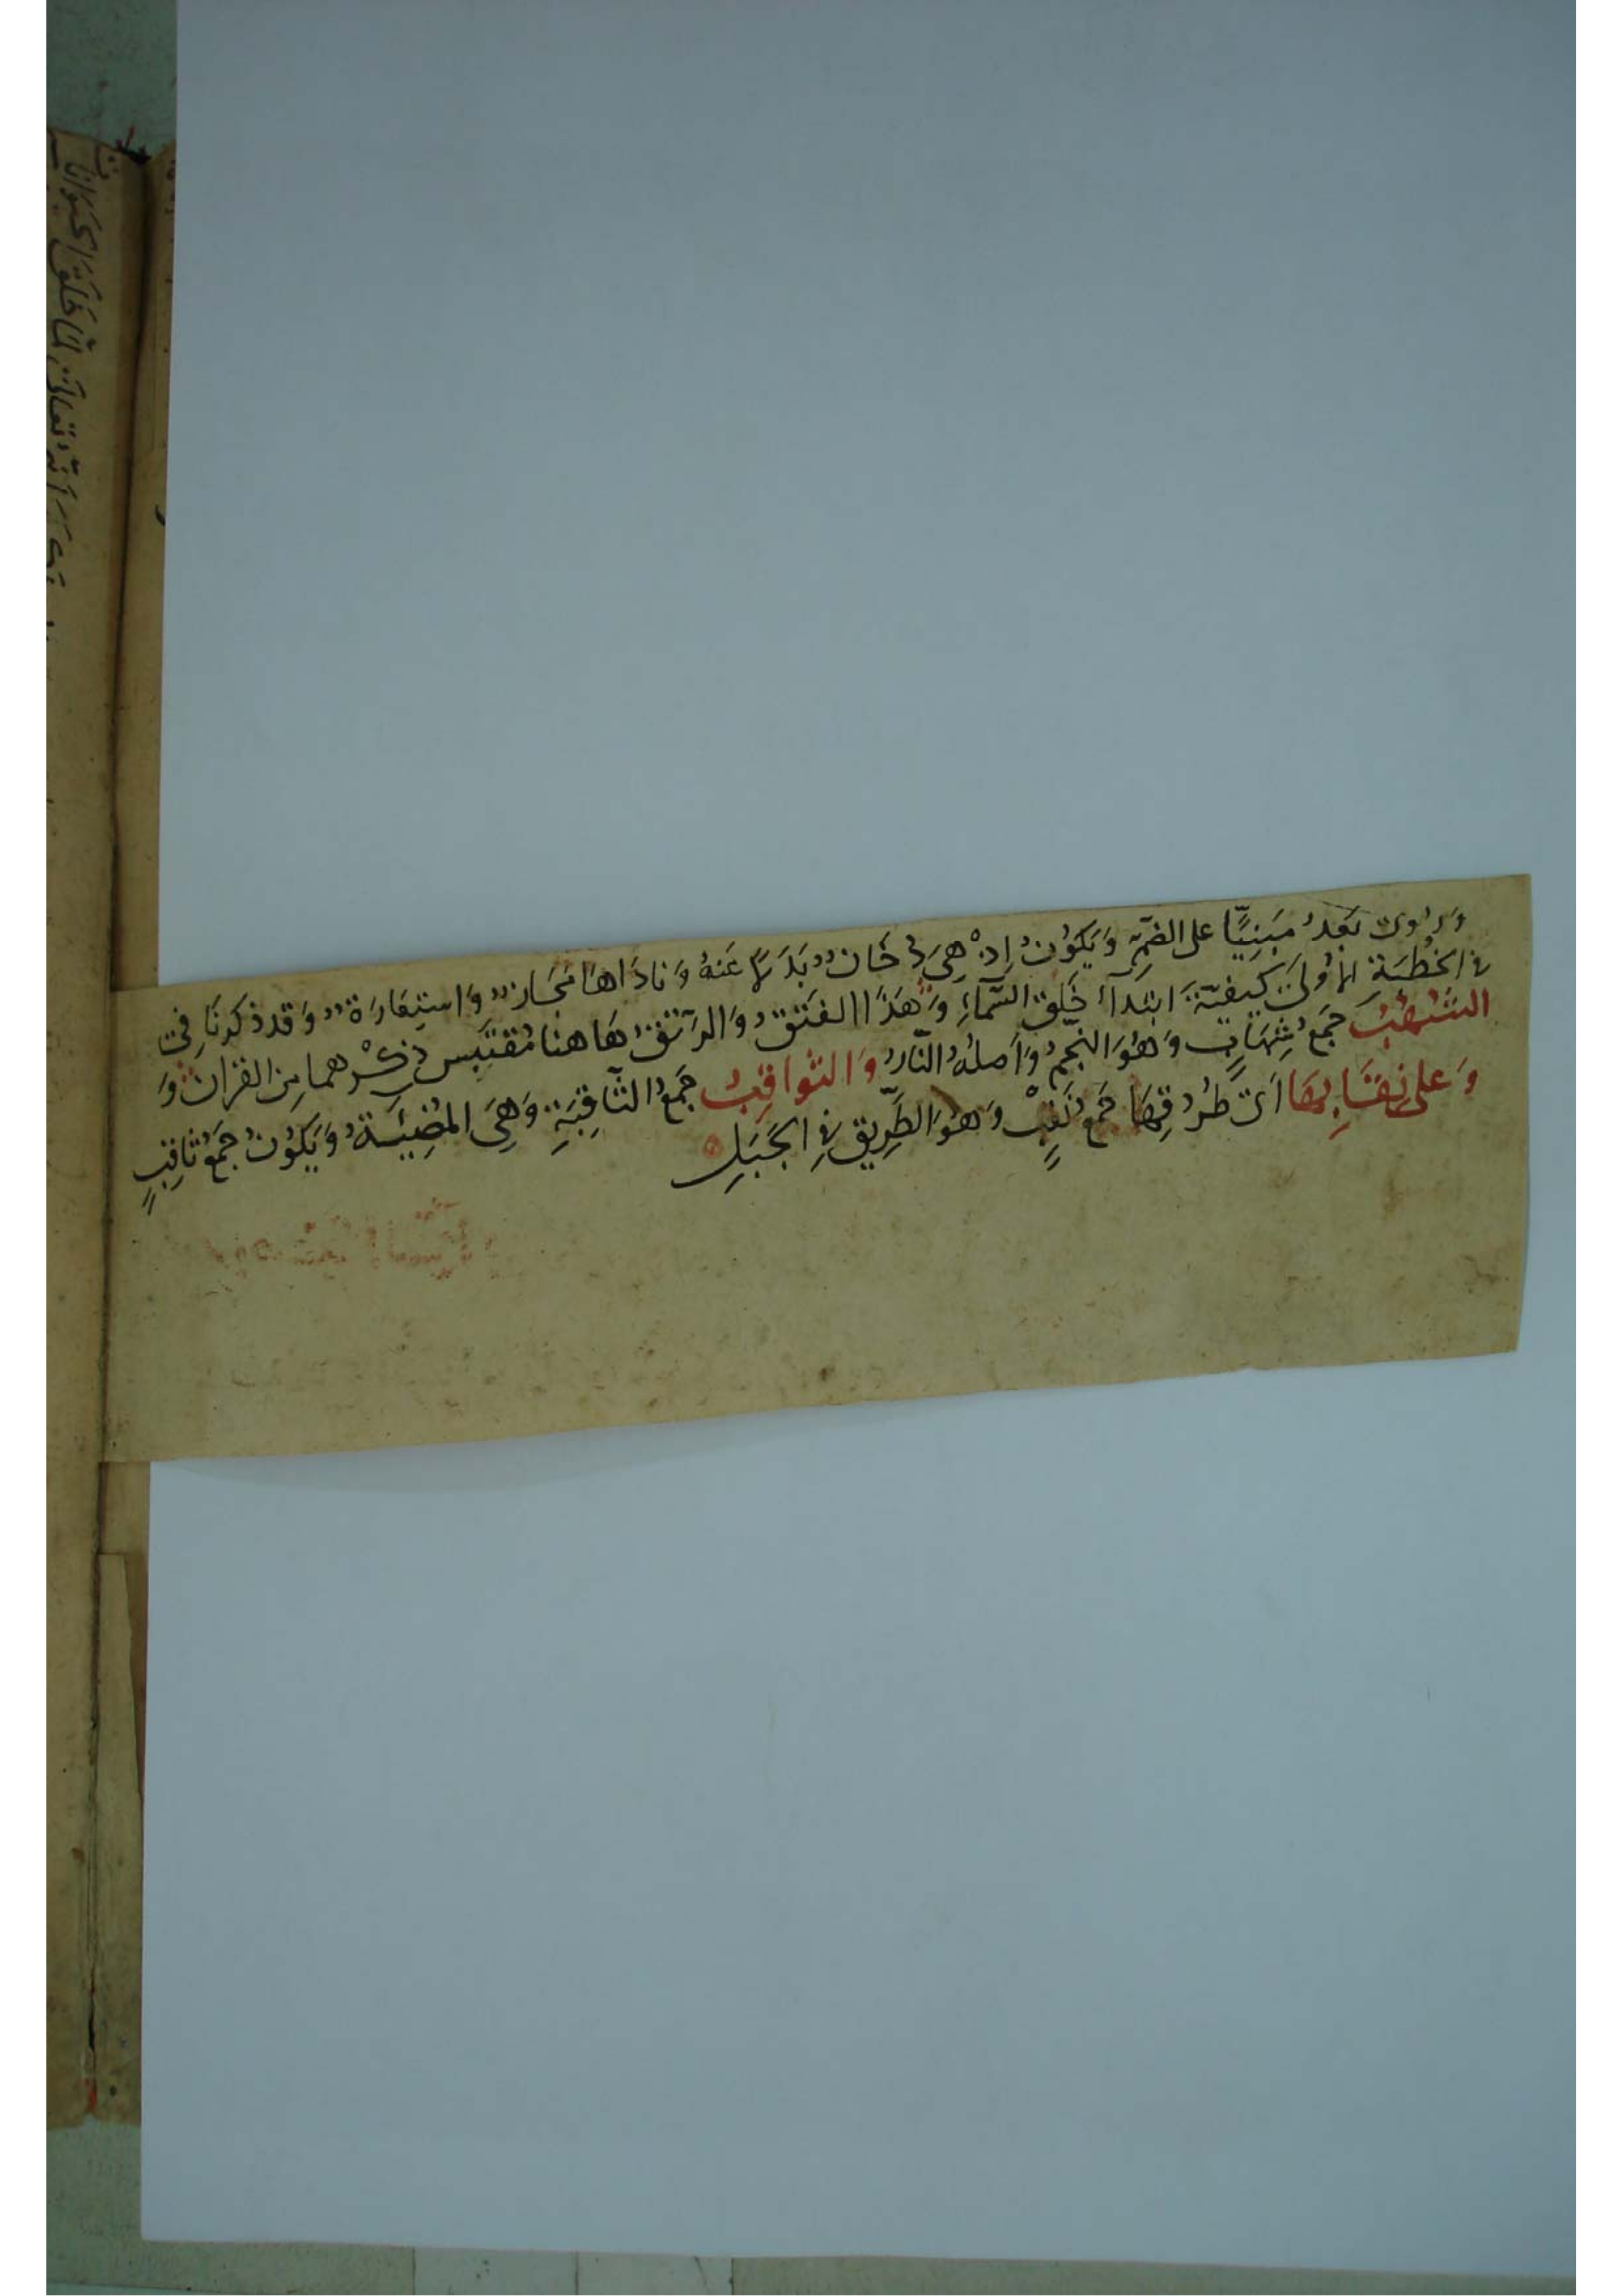 وَرُوِيَ بَعْدُ مَبْنِيًّا على الضَّمِّ وَيَكُونُ اِذْ هِيَ دُخَانٌ بَدَلًا عَنْهُ وَنَادَاهَا مَجَازٌ وَاسْتِعَارَةٌ وَقد ذكرنَا فِي
في الخُطْبَةِ الأُولَى كيفيّةَ ابْتِدَاءِ خَلْقِ السَّمَاءِ وَهَذَا الفَتْقُ وَالرَّتْقُ هَاهنا مُقْتَبِس ذِكْرُهما مِنَ القران وَ
الشُّهُبُ جَمْعُ شِهَابٍ وَهُوَ النَّجْمُ وَاَصلُهُ النَّارُ وَالثَّوَاقِبُ جَمْعُ الثَّاقِبَةِ وَهِيَ المُضِيئَةُ وَيَكُونُ جَمْعُ ثَاقِبٍ
وَعلى نِقَابِهَا اَيْ طُرُقِهَا جَمْعُ نَقْبٍ وَهُوَ الطَّرِيق فِي الجَبَلِ